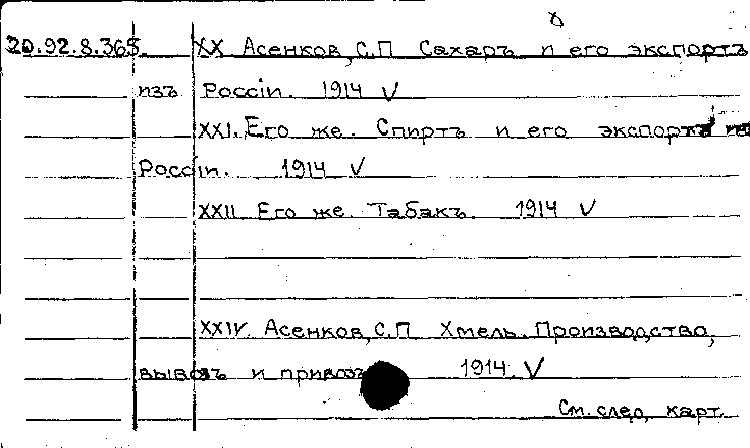 20.92.8.365. XX Асенков, С.П Сахаръ и его экспортъ
изъ Россіи. 1914 V
XXI. Его же. Спиртъ и его экспортъ
Россіи. 1914 V
XXII Его же. Табакъ. 1914 V
XXIV. Асенков, С.П Хмель. Производство,
вывозъ и привозъ 1914. V
См. след. карт.